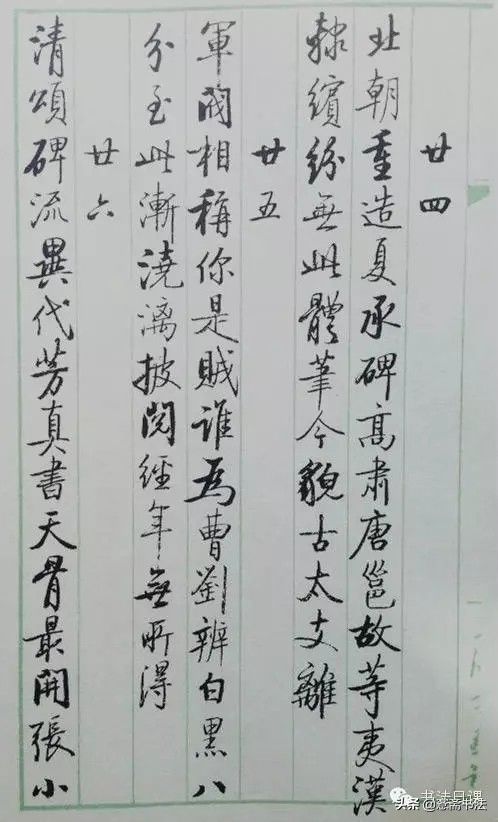 廿四
北朝重造夏承碑高肅唐邕故等夷漢
隸繽紛無此體筆今貌古太支離
廿五
軍閥相稱你是賊誰為曹劉辨白黑八
分至此漸澆漓披閱經年無所得
廿六
清頌碑流異代芳真書天骨最開張小
书法日课
头条@慈斋书法